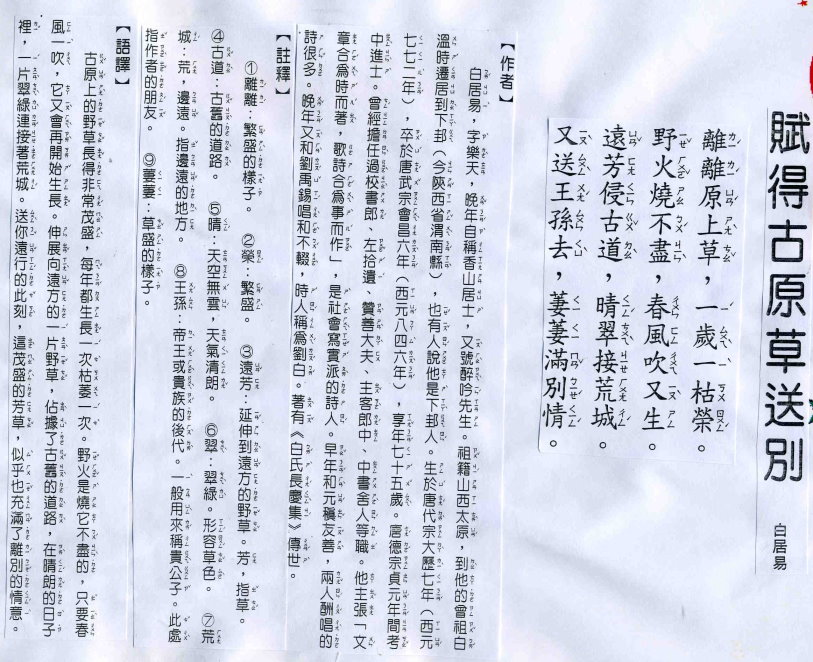 賦得古原草送別
白居易
離離原上草，一歲一枯榮。
野火燒不盡，春風吹又生。
遠芳侵古道，晴翠接荒城。
又送王孫去，萋萋滿別情。
【作者】
白居易，字樂天，晚年自稱香山居士，又號醉吟先生。祖籍山西太原，到他的曾祖白
溫時遷居到下邽（今陝西省渭南縣）也有人說他是下邽人。生於唐代宗大歷七年（西元
七七二年），卒於唐武宗會昌六年（西元八四六年），享年七十五歲。唐德宗貞元年間考
中進士。曾經擔任過校書郎、左拾遺、贊善大夫、主客郎中、中書舍人等職。他主張「文
章合為時而著，歌詩合為事而作」，是社會寫實派的詩人。早年和元稹友善，兩人酬唱的
詩很多。晚年又和劉禹錫唱和不輟，時人稱為劉白。著有《白氏長慶集》傳世。
【註釋】
①離離：繁盛的樣子。　②榮：繁盛。　③遠芳：延伸到遠方的野草。芳，指草。
④古道：古舊的道路。　⑤晴：天空無雲，天氣清朗。　⑥翠：翠綠。形容草色。　⑦荒
城：荒，邊遠。指邊遠的地方。　⑧王孫：帝王或貴族的後代。一般用來稱貴公子。此處
指作者的朋友。　⑨萋萋：草盛的樣子。
【語譯】
古原上的野草長得非常茂盛，每年都生長一次枯萎一次。野火是燒它不盡的，只要春
風一吹，它又會再開始生長。伸展向遠方的一片野草，佔據了古舊的道路，在晴朗的日子
裡，一片翠綠連接著荒城。送你遠行的此刻，這茂盛的芳草，似乎也充滿了離別的情意。